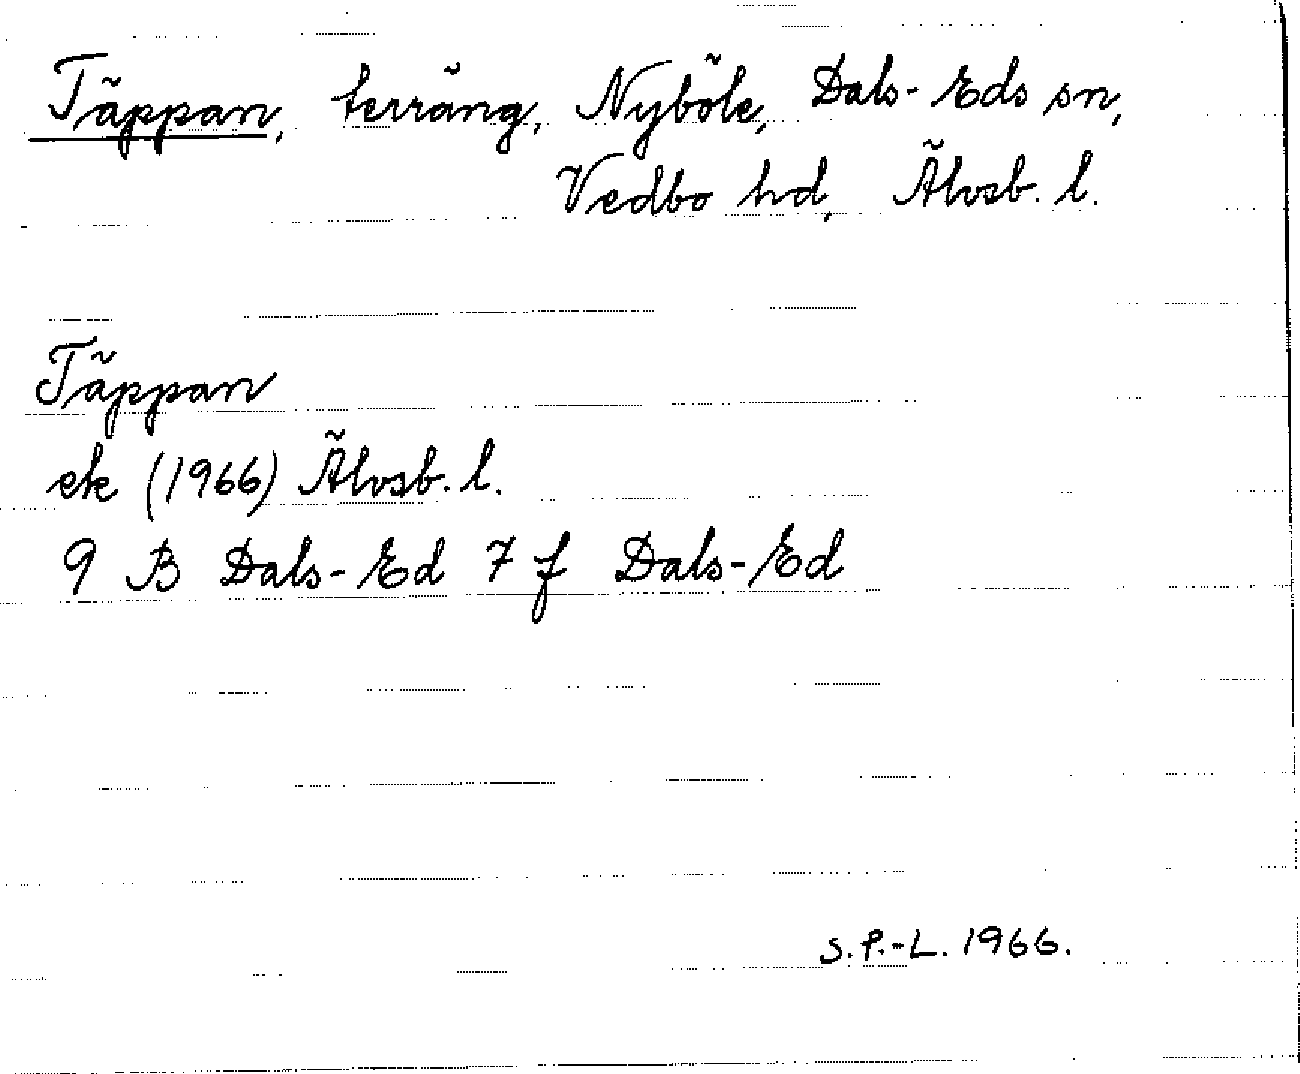 Täppan, terräng, Nyböle, Dals-Eds sn,
Vedbo hd, Älvsb. l.
Täppan
ek (1966) Älvsb. l.
9 B Dals-Ed 7 f Dals-Ed
S. P.-L. 1966.